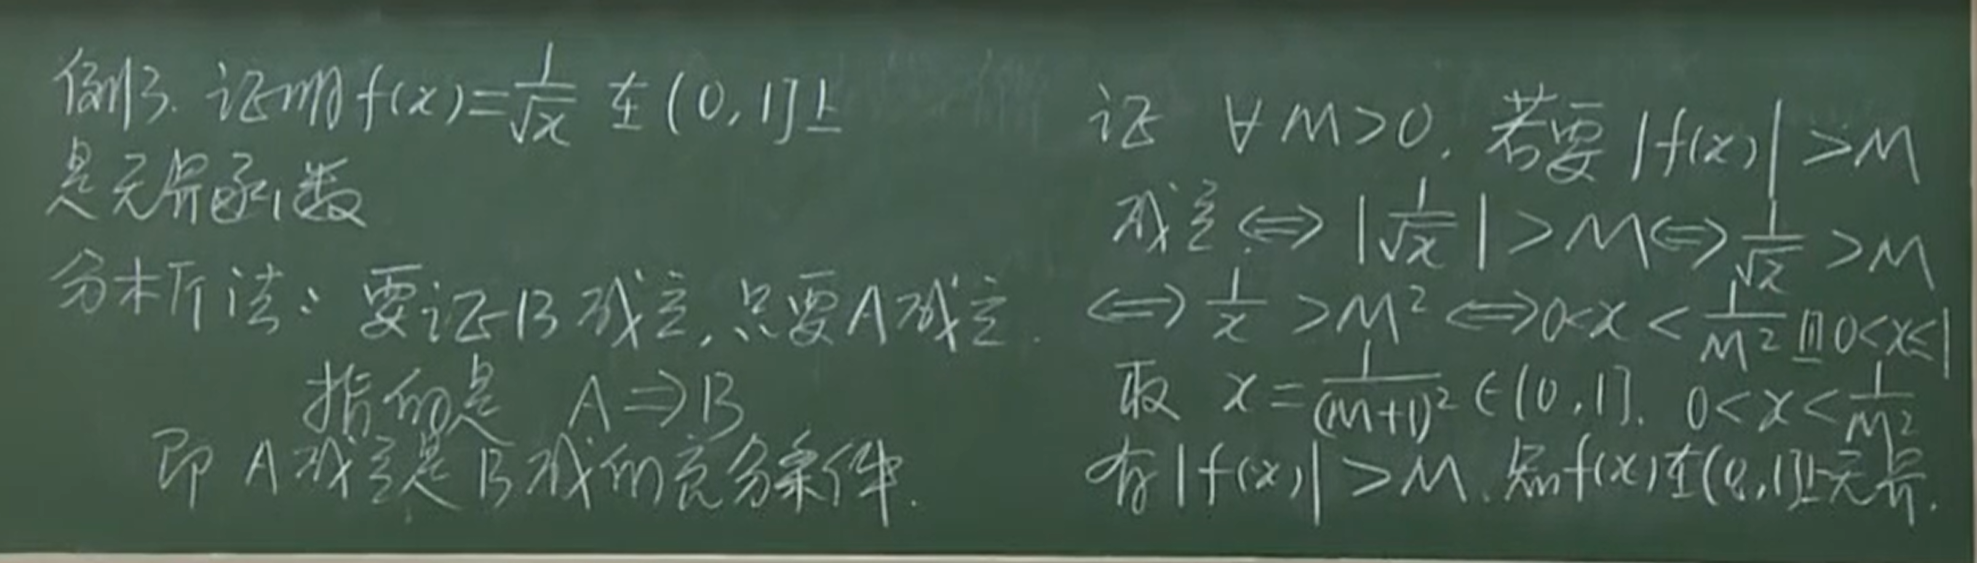 例3. 证明 f(x)=1/√x 在(0,1]上
是无界函数
分析法: 要证B成立,只要A成立.
指的是 A⇒B
即 A成立是B成的充分条件.
证 ∀M>0. 若要|f(x)|>M
成立⇔|1/√x|>M⇔1/√x>M
⇔1/x>M²⇔0<x<1/M² 且0<x≤1
取 x=1/(M+1)²∈(0,1]. 0<x<1/M²
有|f(x)|>M. 知f(x)在(0,1]上无界.